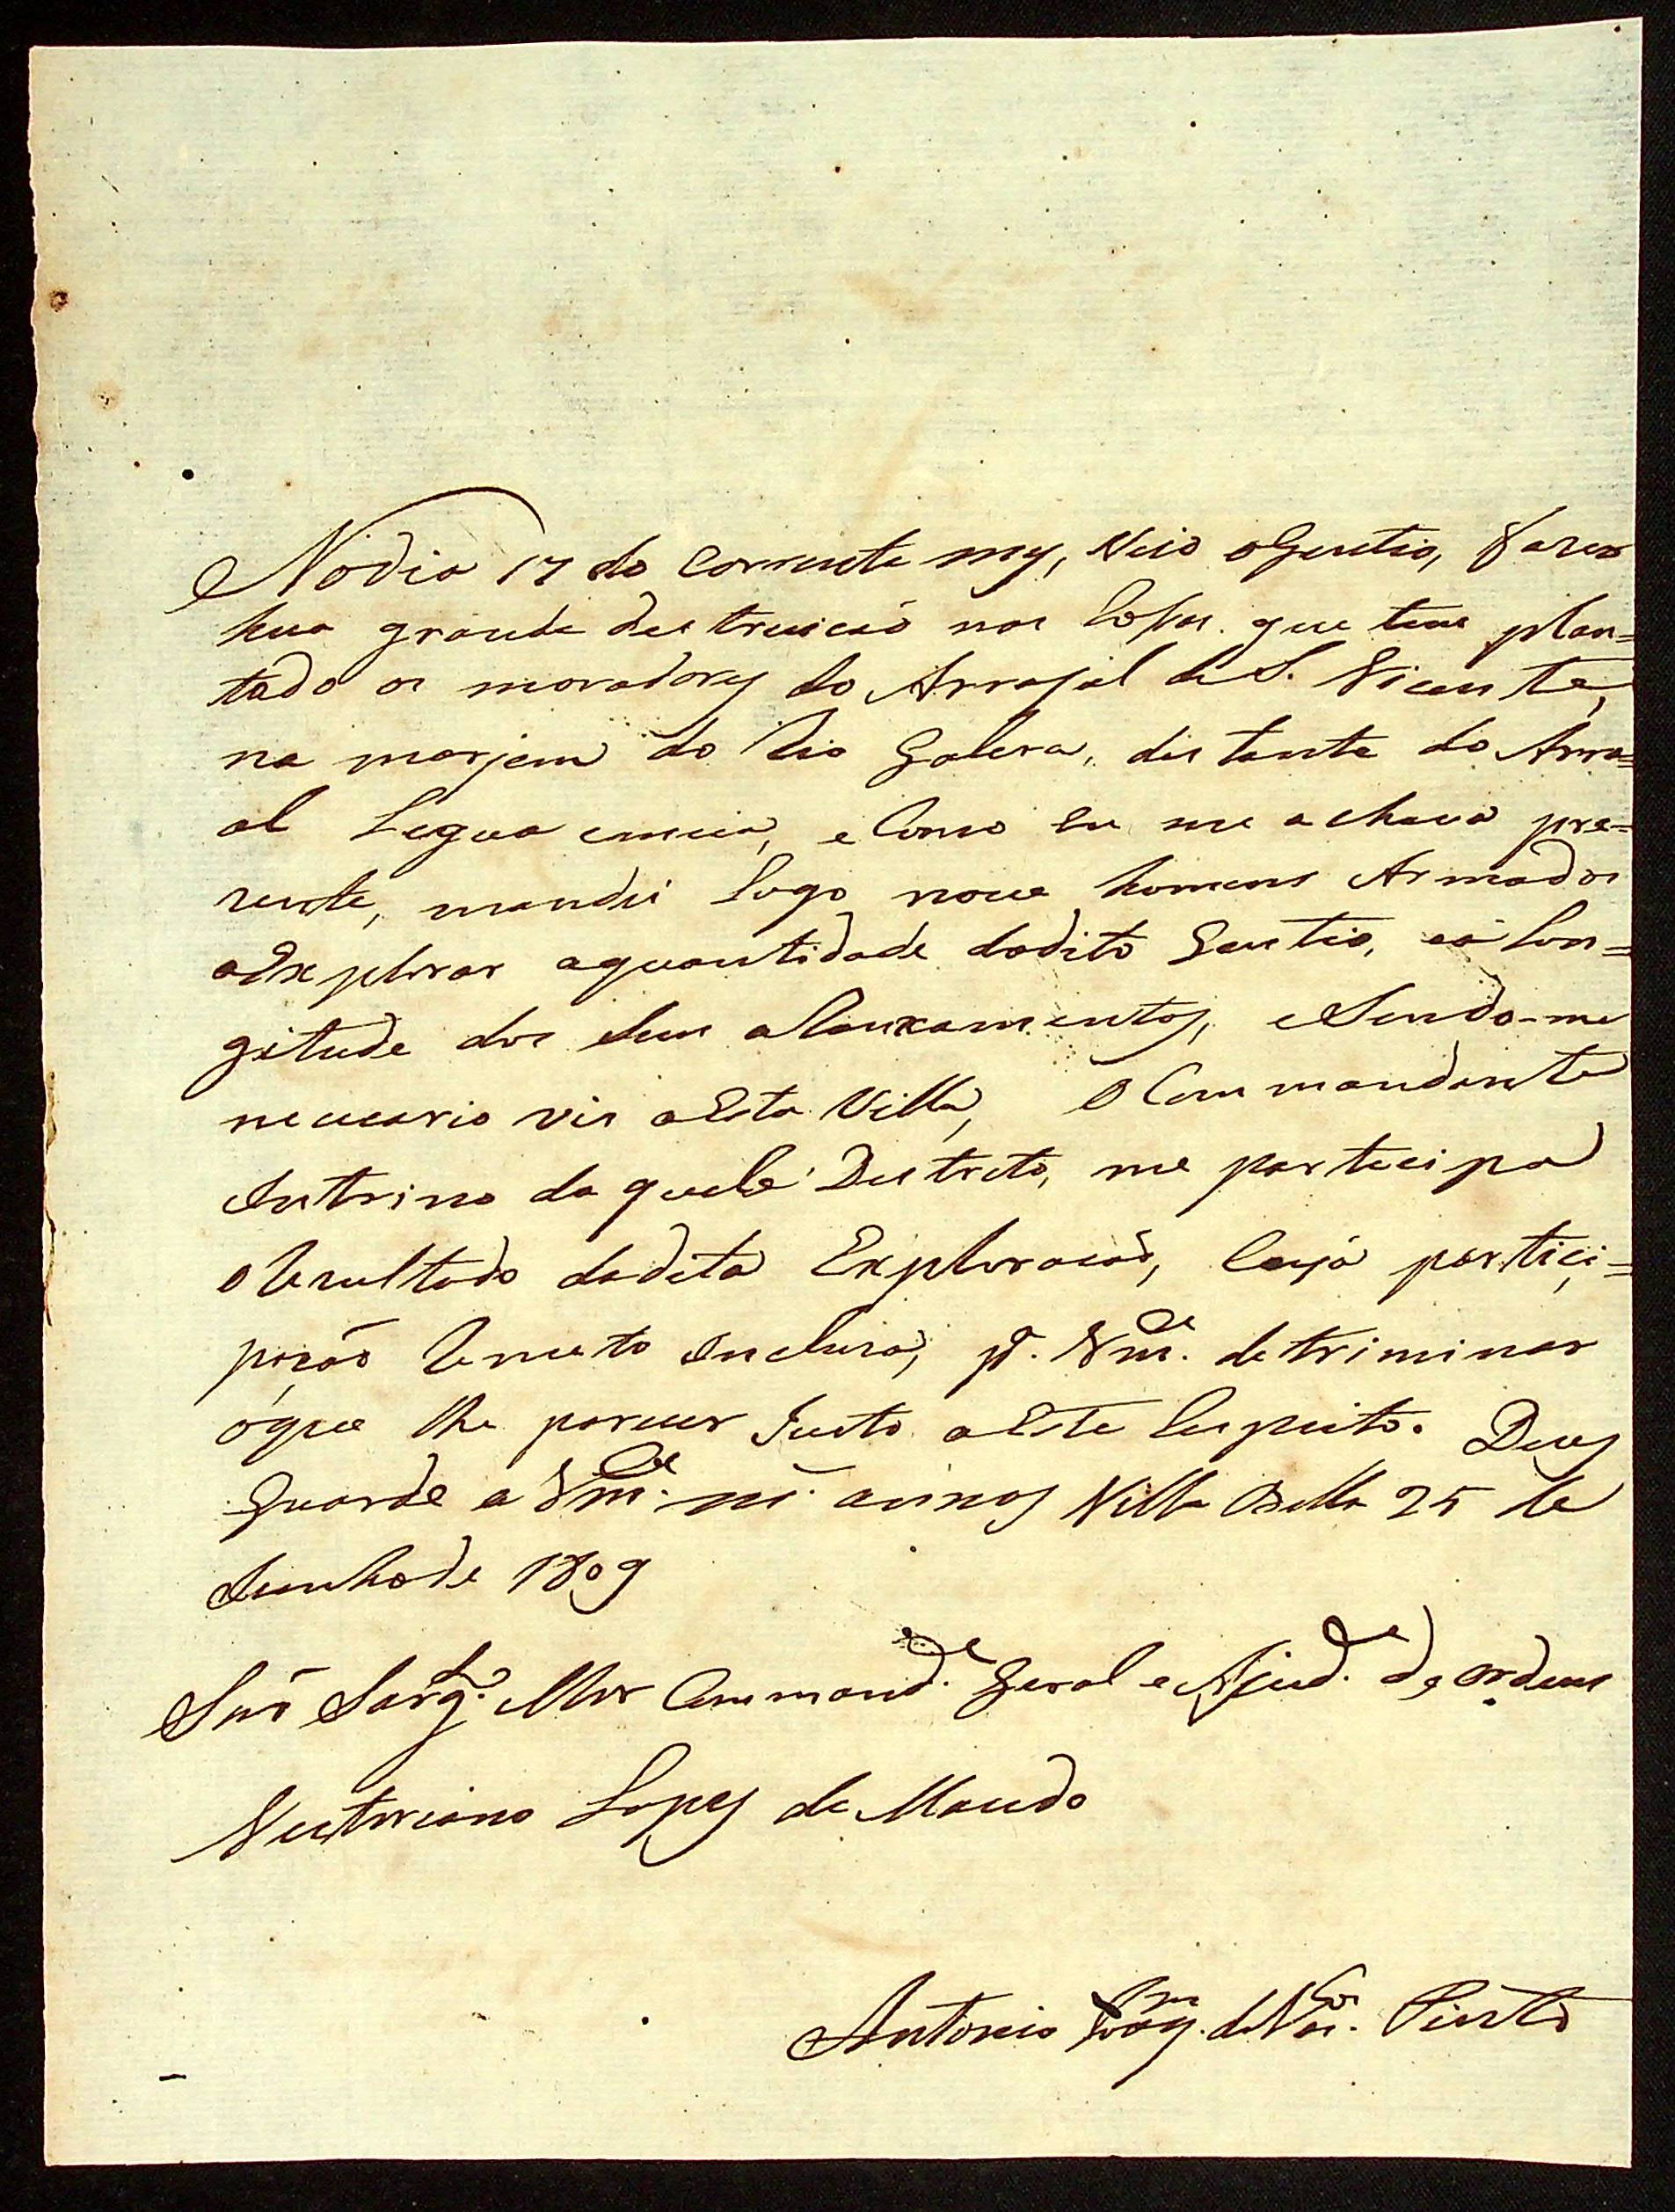 Nodia 17 do Corrente mes, Veio oGentio, Fazer
hua grande destruicaõ nas Rossas que tem plan=
tado os moradores do Arrayal de S. Vicente,
na marjem do Rio Galera, distante do Arra=
al Legua emeia, eComo Eu me achava pre=
zente, mandei Logo nove homens Armados
aExplorar aquantidade dodito Gentio, eà Lon=
gitude dos Seus aLouxamentos, eSendo-me
necesario vir aEsta Villa, o Commandante
Intrino da quele Destreto, me partecipa
oRezultado dadita Exploracaõ, Cuja partici=
pacaõ Remeto Incluza, pª. Vm.ce detriminar
oque lhe parecer Justo aEste Respeito. Deus
Guarde a Vm.ce m.s annos Villa Bella 25 de
Junhode 1809
Snr̃ Sarg.to Mor Command.e Geral e Ajud.e de ordens
Victoriano Lopes de Macedo
Antonio de Pinto